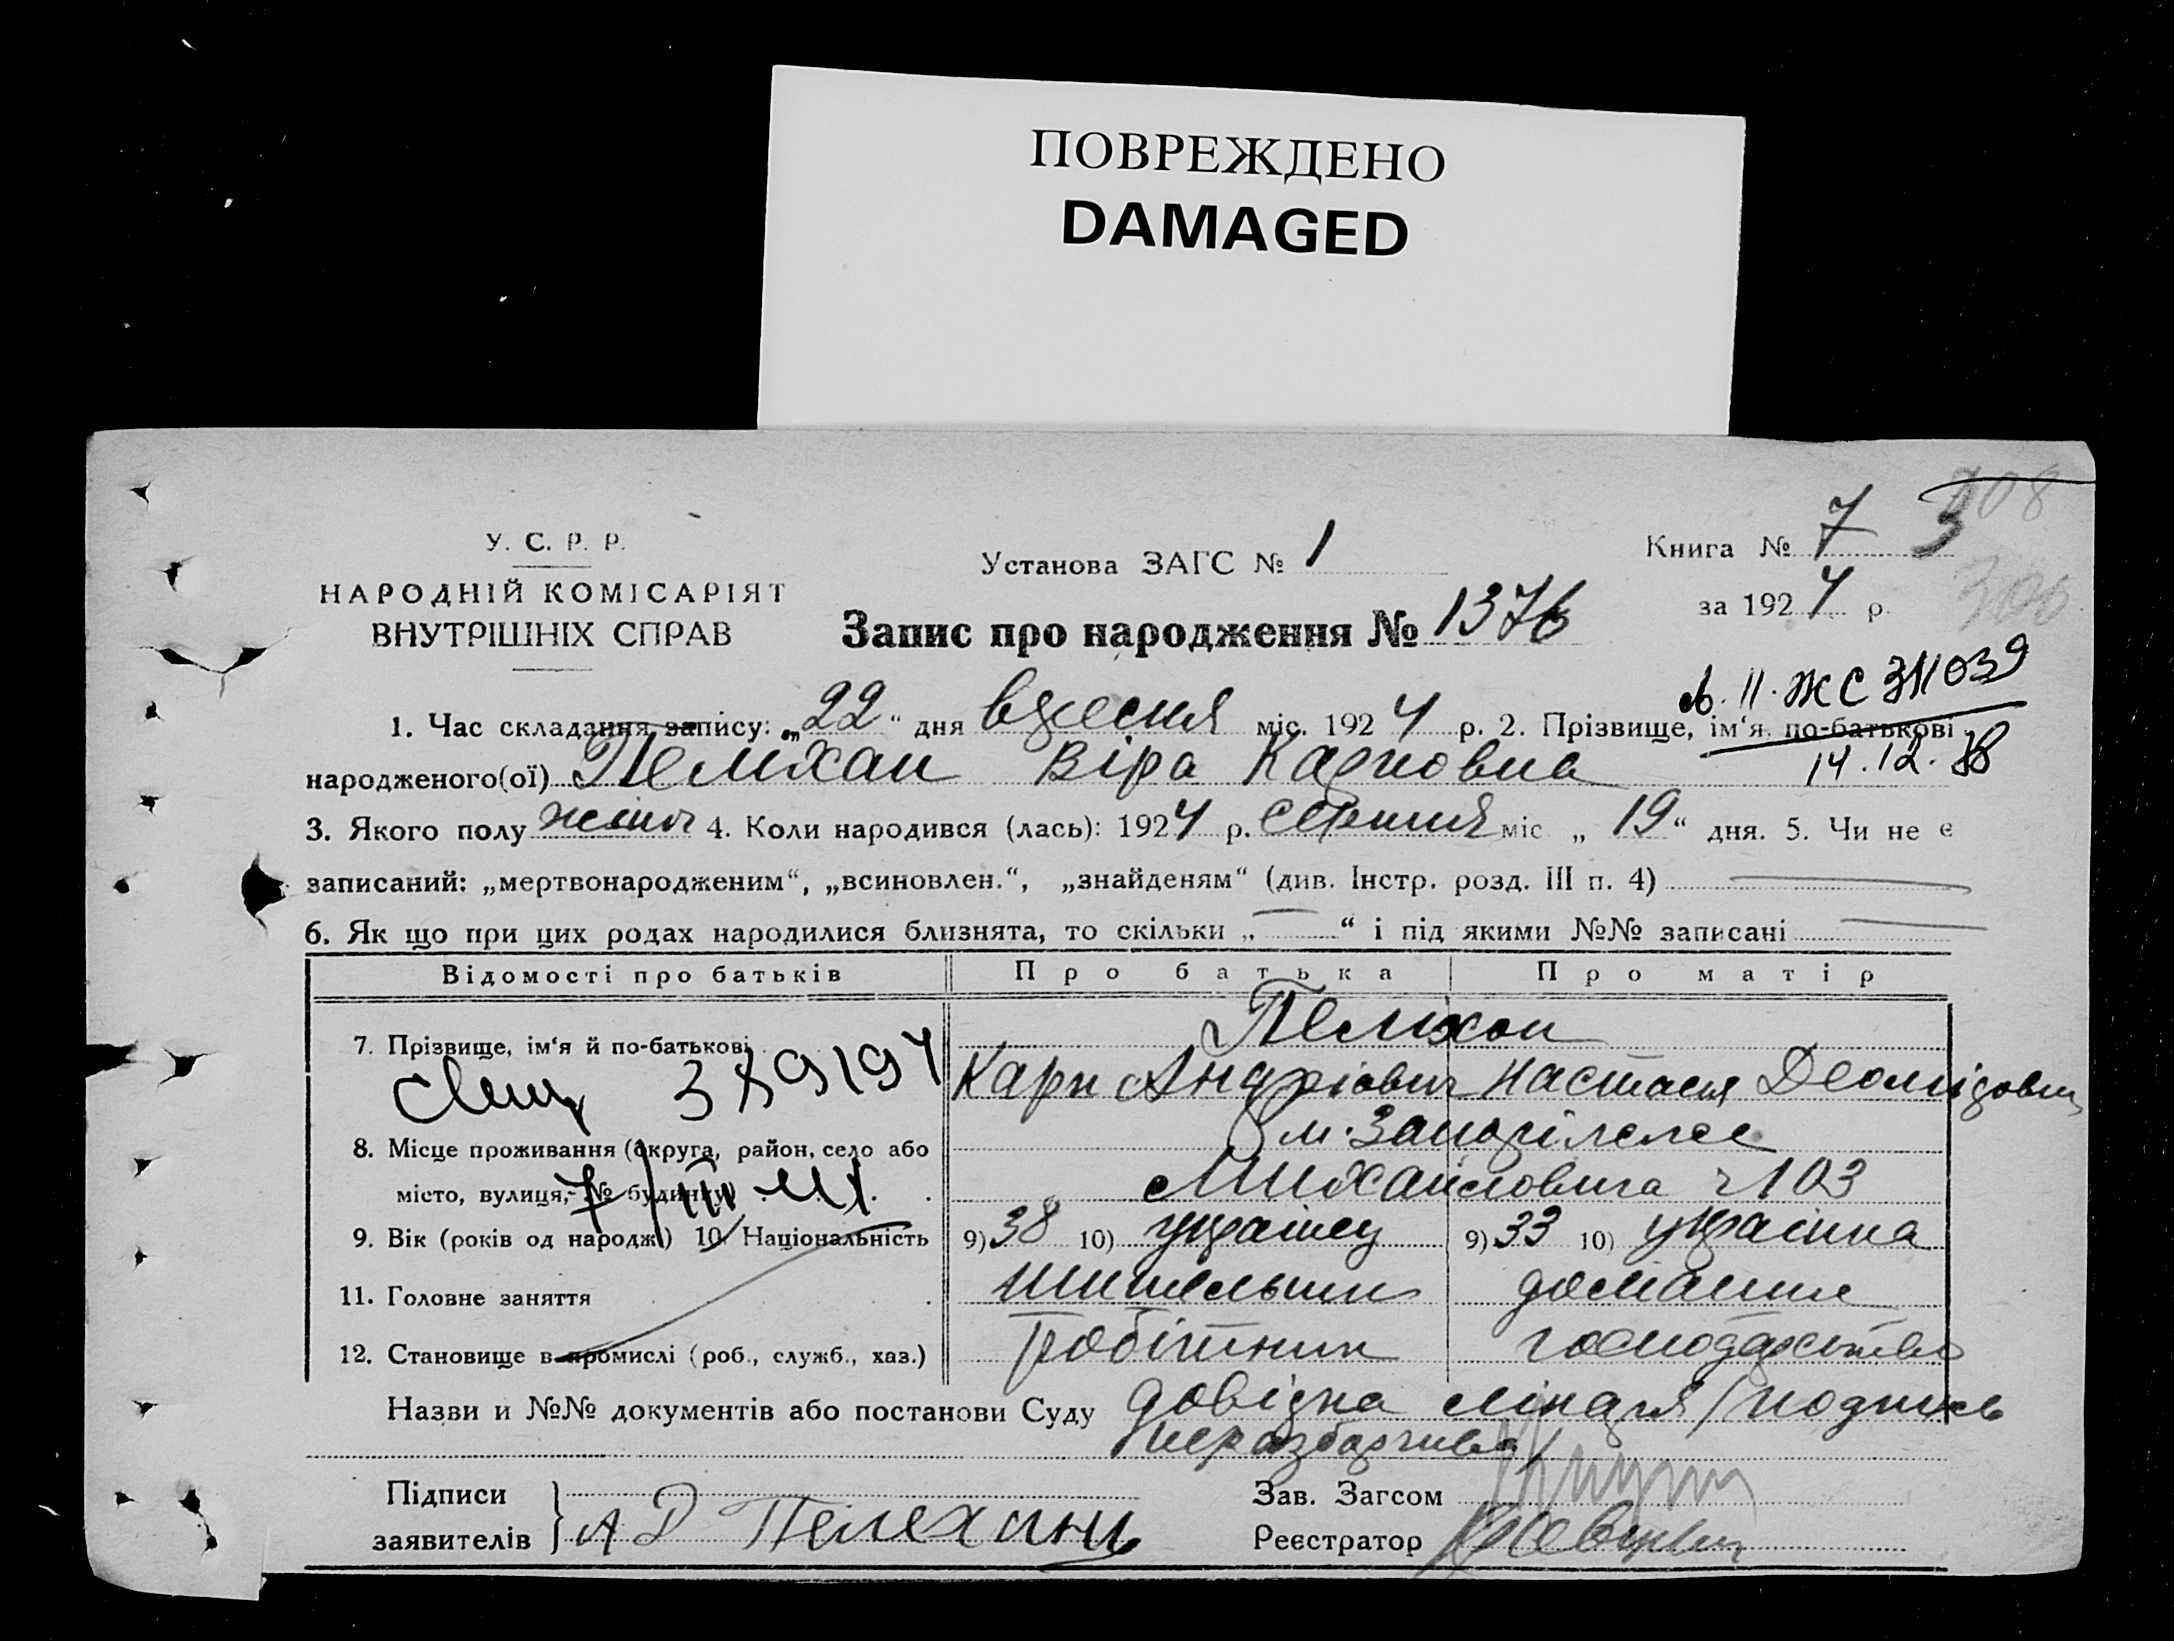 ПОВРЕЖДЕНО
DAMAGED
У. С. Р. Р.
НАРОДНІЙ КОМІСАРІЯТ
ВНУТРІШНІХ СПРАВ
Установа ЗАГС № 1
Книга № 7 3
за 1924 р.
308
306
Запис про народження № 1376
св. II. ЖС 311039
14.12.
1. Час складання запису: „22“ дня вересня міс. 1924 р. 2. Прізвище, ім‘я, по-батькові
народженого(ої) Пелихан Віра Карповна
3. Якого полу жіноч 4. Коли народився (лась): 1924 р. серпня міс „19“ дня. 5. Чи не є
записаний: „мертвонародженим“, „всиновлен.“, „знайденям“ (див. Інстр. розд. III п. 4)
6. Як що при цих родах народилися близнята, то скільки „ — “ і під якими №№ записані —
Відомості про батьків Про батька Про матір
7. Прізвище, ім‘я й по-батькові Пелихан
Карп Андріович Настасія Деомідовна
389194
8. Місце проживання (округа, район, село або м. Запоріжжє
місто, вулиця, № будинку) Михайловича ч 103
9. Вік (років од народж.) 10. Національність 9) 38 10) українец 9) 33 10) українка
11. Головне заняття домашнє
12. Становище в промислі (роб., служб., хаз.) робітник господарство
Назви и №№ документів або постанови Суду довідка лікаря /подпись
неразборчива/
Підписи
заявителів А Д Пелехань
Зав. Загсом
Реєстратор